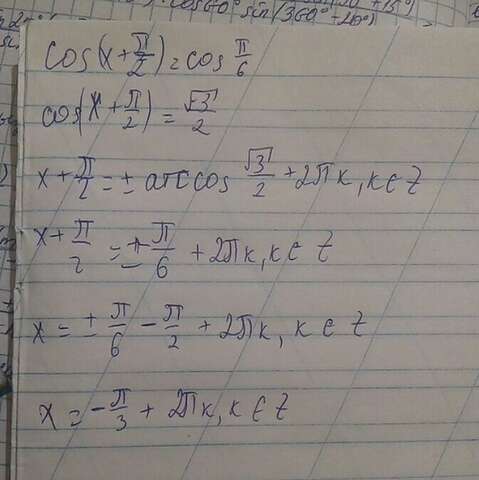 cos60° sin(360°+20°)
cos(x+π/2)=cos π/6
cos(x+π/2)=√3/2
x+π/2=± arccos √3/2 +2πk, k∈Z
x+π/2=±π/6 +2πk, k∈Z
x=±π/6 -π/2 +2πk, k∈Z
x=-π/3 + 2πk, k∈Z